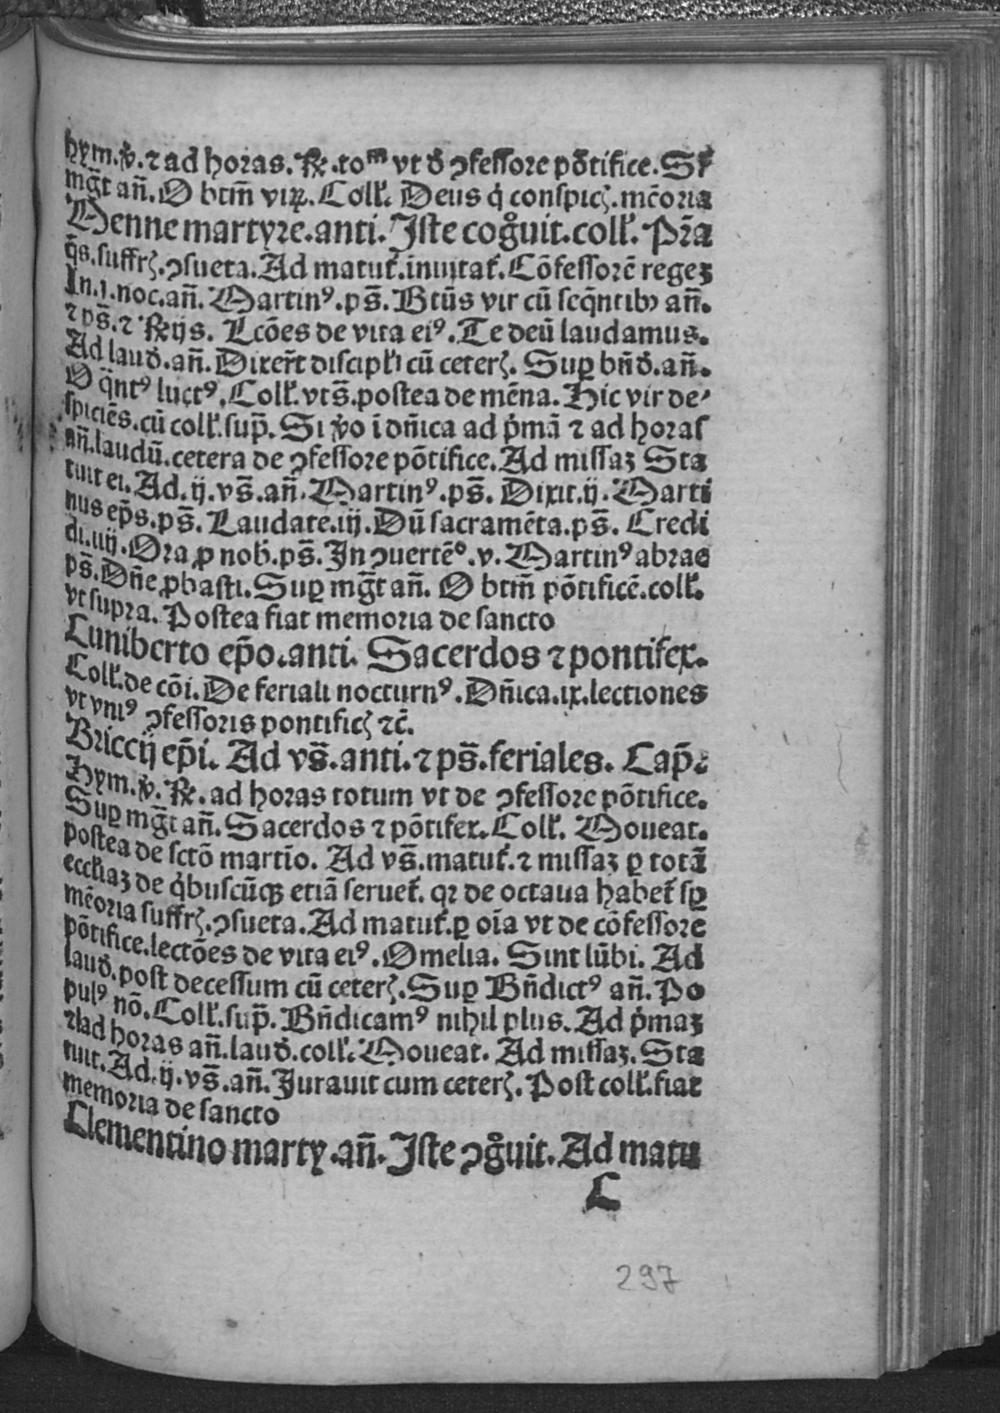 hym.v̄. ⁊ ad horas. ℟.toᵐ vt ꝺ̄ ꝯfessore põtifice. Sꝛ
mg̃t añ. O btm̃ viꝝ. Coll̃. Deus q̇ conspicꝭ. mẽoria
Menne martyre. anti. Iste cogͦuit. coll̃. Pr̃a
q̃s. suffrꝭ. ꝯsueta. Ad matut̃. inuitat̃. Cõfessorẽ regeꝫ
In.j. noc. añ. Martinꝰ. ps̃. Btũs vir cũ seq̃ntibꝫ añ.
⁊ ps̃. ⁊ ℟ijs. Lcões de vita eiꝰ. Te deũ laudamus.
Ad lauꝺ̄. añ. Dixer̃t discipl̃i cũ ceterꝭ. Suꝑ bñꝺ̄. añ.
O q̃ntꝰ luctꝰ. Coll̃. vts̃. postea de mẽna. Hic vir de⸗
spiciẽs. cũ coll̃. sup̃. Si v̄o ĩ dñica ad ṗmã ⁊ ad horas
añ. laudũ. cetera de ꝯfessore põtifice. Ad missaꝫ Sta
tuit ei. Ad. ij. vs̃. añ. Martinꝰ. ps̃. Dixit. ij. Marti
nus ep̃s. ps̃. Laudate. iij. Dũ sacramẽta. ps̃. Credi
di. iiij. Ora ꝓ nob̃. ps̃. In ꝯuertẽº. v. Martinꝰ abrae
ps̃. Dñe ꝓbasti. Suꝑ mg̃t añ. O btm̃ põtificẽ. coll̃.
vt supra. Postea fiat memoria de sancto
Cuniberto ep̃o. anti. Sacerdos ⁊ pontifex.
Coll̃. de cõi. De feriali nocturnꝰ. Dñica. ix. lectiones
vt vniꝰ ꝯfessoris pontificꝭ ⁊c̃.
Briccij ep̃i. Ad vs̃. anti. ⁊ ps̃. feriales. Cap̃.
Hym. v̄. ℟. ad horas totum vt de ꝯfessore põtifice.
Suꝑ mg̃t añ. Sacerdos ⁊ põtifex. Coll̃. Moueat.
postea de sctõ martĩo. Ad vs̃. matut̃. ⁊ missaꝫ ꝑ totã
eccl̃iaꝫ de q̇buscũqꝫ etiã seruet̃. qꝛ de octaua habet̃ sꝑ
mẽoria suffrꝭ. ꝯsueta. Ad matut̃. ꝑ oĩa vt de cõfessore
põtifice. lectões de vita eiꝰ. Omelia. Sint lũbi. Ad
lauꝺ̄. post decessum cũ ceterꝭ. Suꝑ Bñdictꝰ añ. Po
pulꝰ nõ. Coll̃. sup̃. Bñdicamꝰ nihil plus. Ad ṗmaꝫ
⁊ ad horas añ. lauꝺ̄. coll̃. Moueat. Ad missaꝫ. Sta
tuit. Ad. ij. vs̃. añ. Iurauit cum ceterꝭ. Post coll̃. fiat
memoria de sancto
Clementino marty. añ. Iste ꝯgͦuit. Ad matu
L
297